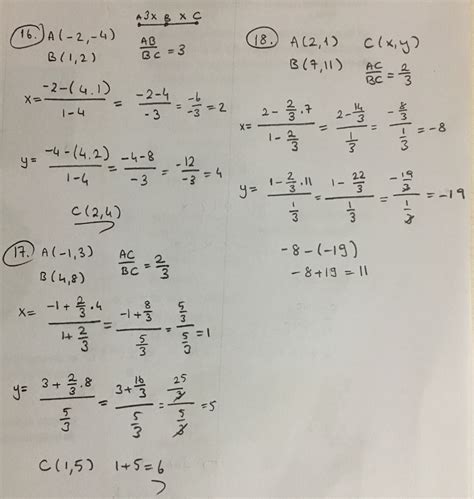 A 3x B x C
16. A(-2,-4) AB/BC = 3
B(1,2)
x= -2-(4.1)/1-4 = -2-4/-3 = -6/-3 = 2
y= -4-(4.2)/1-4 = -4-8/-3 = -12/-3 = 4
C(2,4)
17. A(-1,3) AC/BC = 2/3
B(4,8)
x= -1+2/3.4/1+2/3 = -1+8/3/5/3 = 5/3/5/3 = 1
y= 3+2/3.8/5/3 = 3+16/3/5/3 = 25/3/5/3 = 5
C(1,5) 1+5=6
18. A(2,1) C(x,y)
B(7,11) AC/BC = 2/3
x= 2-2/3.7/1-2/3 = 2-14/3/1/3 = -8/3/1/3 = -8
y= 1-2/3.11/1/3 = 1-22/3/1/3 = -19/3/1/3 = -19
-8-(-19)
-8+19=11